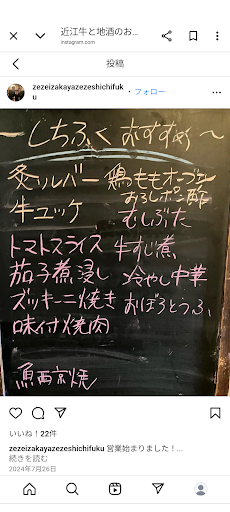 近江牛と地酒のお...
instagram.com
投稿
zezeizakayazezeshichifuk
u
• フォロー
～しちふくおすすめ～
炙りレバー 鶏ももオーブン
おろしポン酢
牛ユッケ むしぶた
トマトスライス 牛すじ煮
茄子煮浸し 冷やし中華
ズッキーニ焼き おぼろとうふ
味付焼肉
魚西京焼
いいね！22件
zezeizakayazezeshichifuku 営業始まりました！...
続きを読む
2024年7月26日